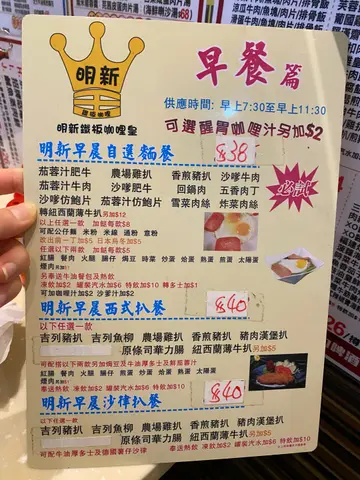 明新
鐵板咖喱
明新鐵板咖喱皇
早餐篇
供應時間: 早上7:30至早上11:30
可選醒胃咖喱汁另加$2
明新早晨自選麵餐 $38
茄蓉汁肥牛 農場雞扒 香煎豬扒 沙嗲牛肉
茄蓉汁牛肉 沙嗲肥牛 回鍋肉 五香肉丁
沙嗲仿鮑片 茄蓉汁仿鮑片 雪菜肉絲 炸菜肉絲
轉紐西蘭薄牛扒另加$12
以上任選一款 加餸每款$8
可配公仔麵 米粉 米線 通粉 意粉
改出前一丁加$5 日本烏冬加$5
任選以下兩款 加餸每款$5
紅腸 餐肉 火腿 腸仔 焗豆 時菜 炒蛋 烚蛋 熱蛋 煎蛋 太陽蛋
煙肉
另奉送牛油餐包及熱飲
凍飲加$2 罐裝汽水加$6 特飲加$10 轉多士加$1
可加咖喱汁加$2 沙爹汁加$2
必試
明新早晨西式扒餐 $40
以下任選一款
吉列豬扒 吉列魚柳 農場雞扒 香煎豬扒 豬肉漢堡扒
原條司華力腸 紐西蘭薄牛扒另加$5
紅腸 餐肉 火腿 腸仔 炒蛋 烚蛋 熱蛋 煎蛋 太陽蛋
煙肉
奉送熱飲 凍飲加$2 罐裝汽水加$6 特飲加$10
明新早晨沙律扒餐 $40
以下任選一款
吉列豬扒 吉列魚柳 農場雞扒 香煎豬扒 豬肉漢堡扒
原條司華力腸 紐西蘭薄牛扒另加$5
可配牛油厚多士及德國薯仔沙律
奉送熱飲 凍飲加$2 罐裝汽水加$6 特飲加$10